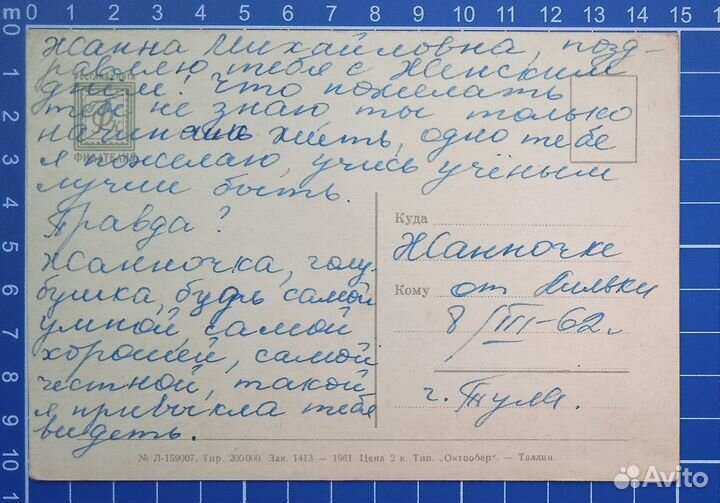 Жанна Михайловна, позд-
равляю тебя с Женским
днём! Что пожелать
тебе не знаю ты только
начинаешь жить, одно тебе
я пожелаю, учись учёным
лучше быть.
Правда?
Жанночка, голу-
бушка, будь самой
умной, самой
хорошей, самой
честной, такой
я привыкла тебя
видеть.
ФИЛАТЕЛИЯ
Куда
Жанночке
Кому от Лильки
8/III-62 г.
г. Тула.
№ Л-159007. Тир. 200000. Зак. 1413 — 1961 Цена 2 к. Тип. „Октообер". — Таллин.
Avito